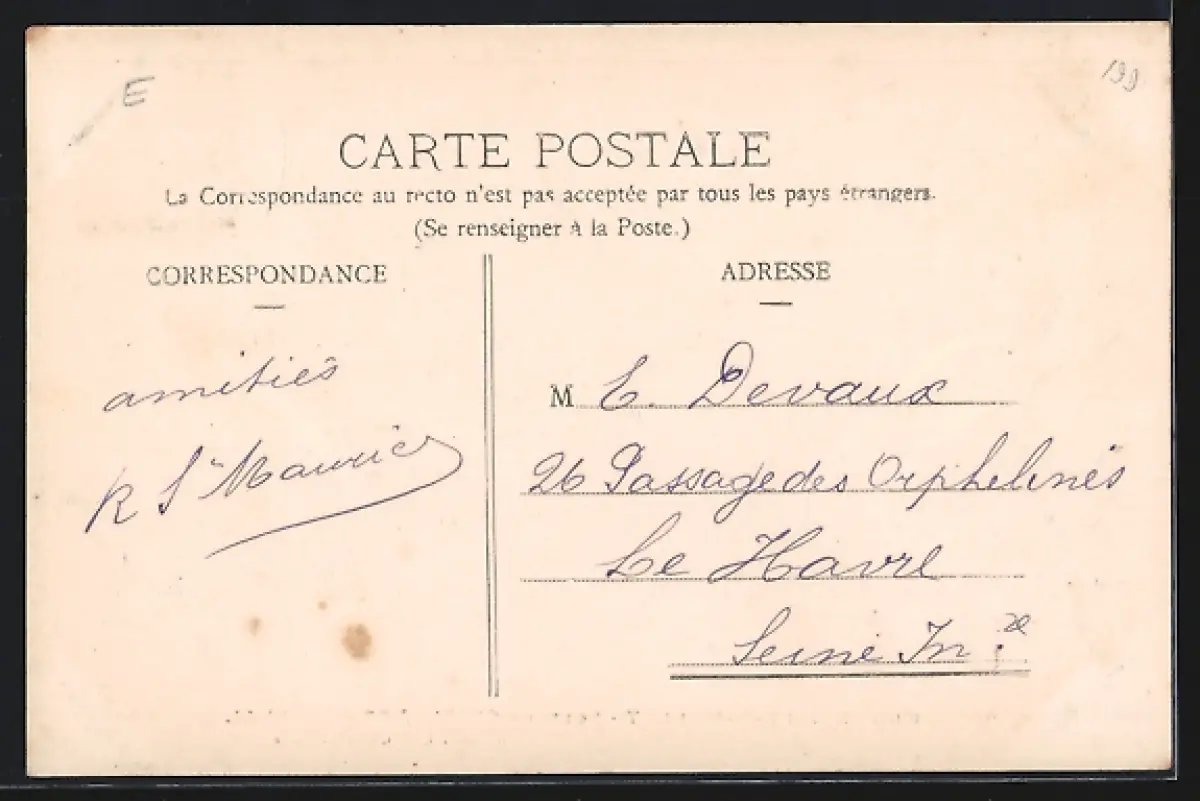 E
199
CARTE POSTALE
La Correspondance au recto n'est pas acceptée par tous les pays étrangers.
(Se renseigner à la Poste.)
CORRESPONDANCE
amitiés
R St Maurice
ADRESSE
M E. Devaux
26 Passage des Orphelines
Le Havre
Seine Inre